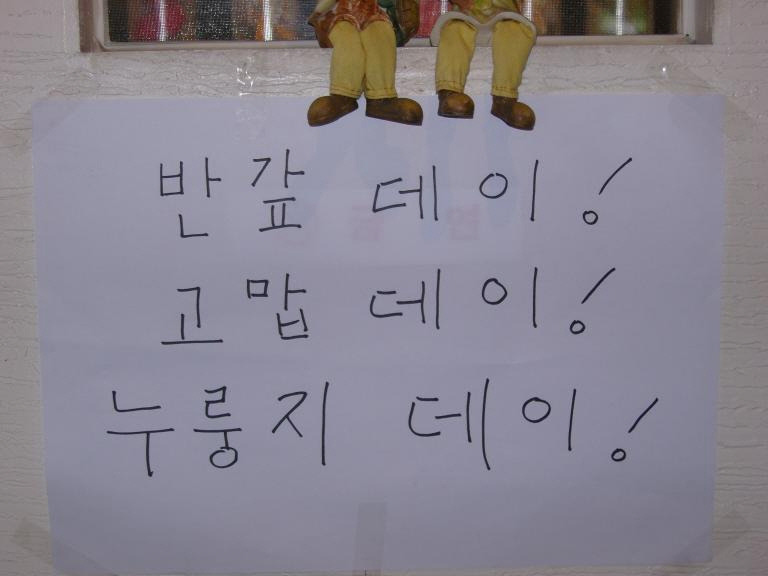 반갚 데이!
고맙 데이!
누룽지 데이!